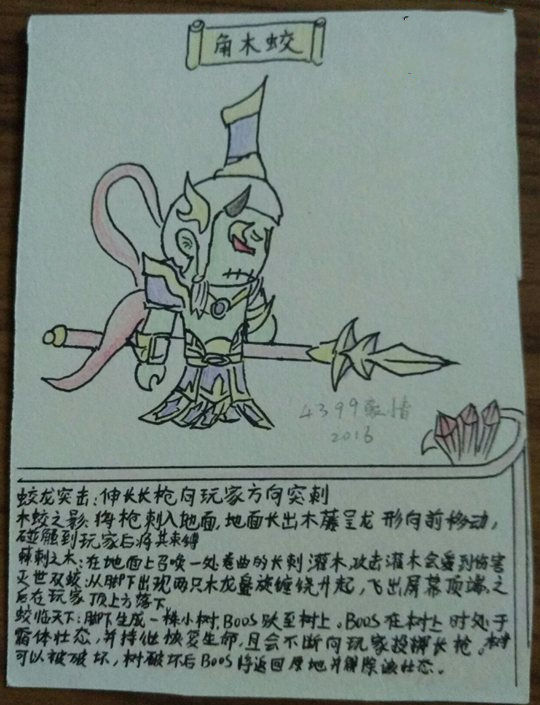 角木蛟
4399豪情
2016
蛟龙突击:伸长长枪向玩家方向突刺
木蛟之影:将枪刺入地面,地面长出木藤呈龙形向前移动,
碰触到玩家后将其束缚
棘刺之木:在地面上召唤一处卷曲的长刺灌木,攻击灌木会受到伤害
灭世双蛟:从脚下出现两只木龙盘旋缠绕升起,飞出屏幕顶端,之
后在玩家顶上方落下。
蛟临天下:脚下生成一棵小树,BOOS跃至树上。BOOS在树上时处于
霸体状态,并持继恢复生命,且会不断向玩家投掷长枪。树
可以被破坏,树破坏后BOOS将返回原地并解除该状态。